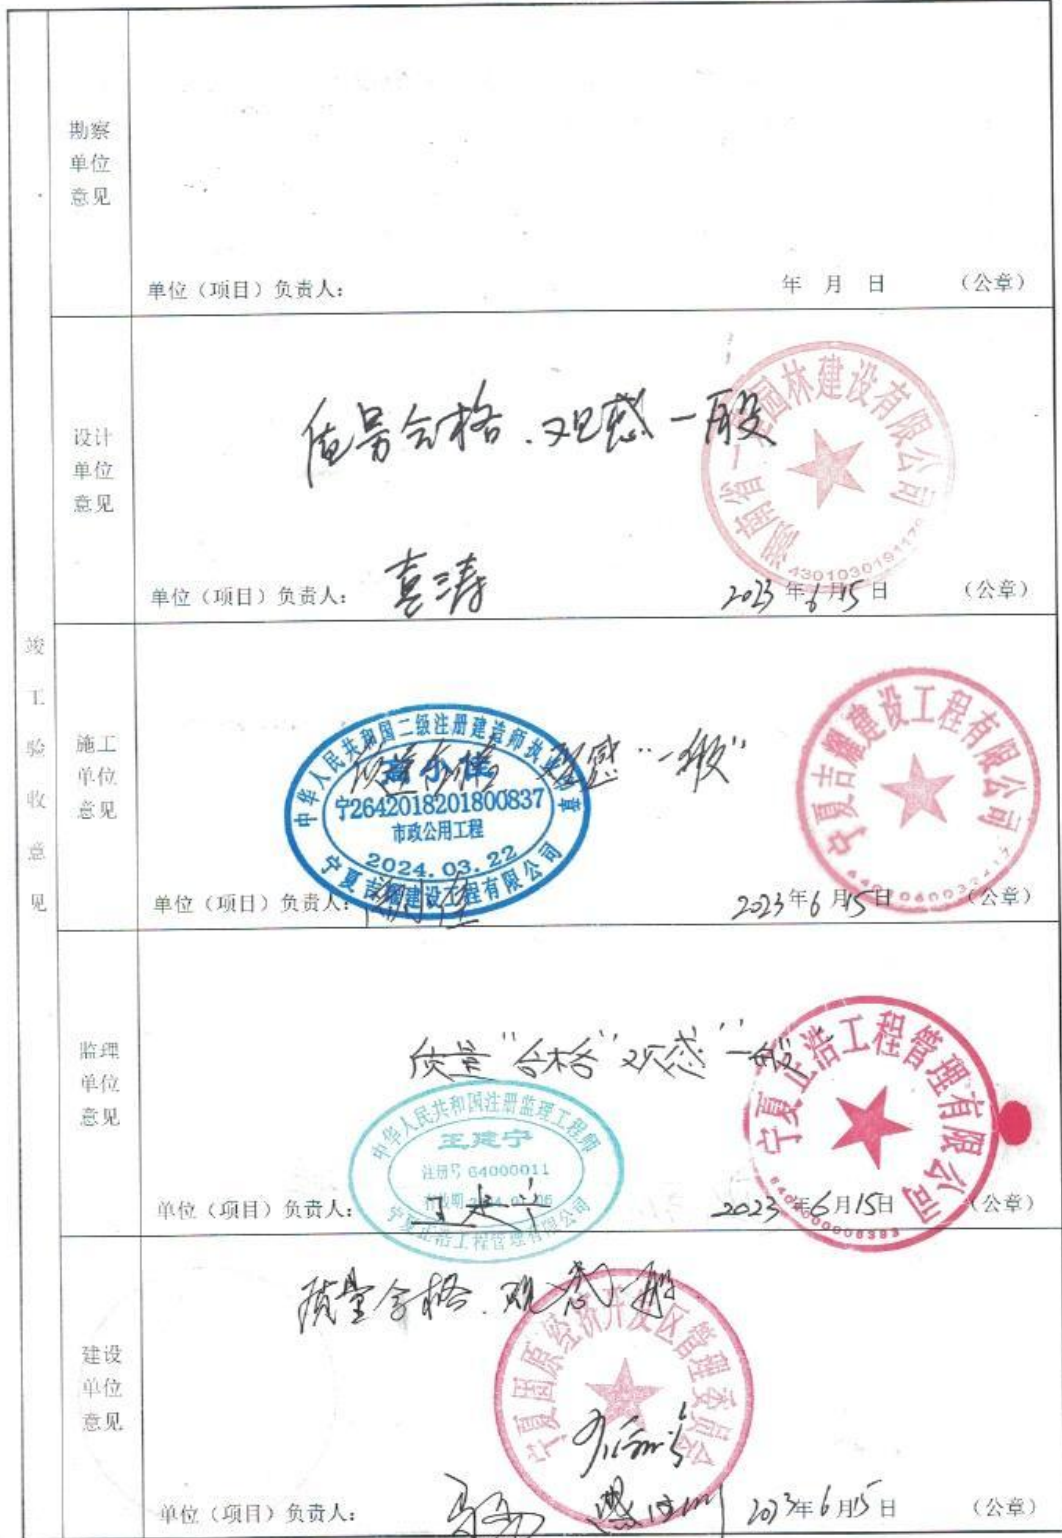 竣工验收意见
勘察单位意见
单位（项目）负责人： 年 月 日 （公章）
设计单位意见
质量合格．观感一般
湖南省一 园林建设有限公司
单位（项目）负责人： 袁涛 2023年6月15日 （公章）
施工单位意见
质量合格 观感“一般”
中华人民共和国二级注册建造师执业印章
宁2642018201800837
市政公用工程
2024.03.22
宁夏吉耀建设工程有限公司
宁夏吉耀建设工程有限公司
单位（项目）负责人： 2023年6月15日 （公章）
监理单位意见
质量“合格”观感“一般”
中华人民共和国注册监理工程师
王建宁
注册号 64000011
宁夏正浩工程管理有限公司
宁夏正浩工程管理有限公司
单位（项目）负责人： 王建宁 2023年6月15日 （公章）
建设单位意见
质量合格．观感一般
宁夏固原经济开发区管理委员会
单位（项目）负责人： 2023年6月15日 （公章）